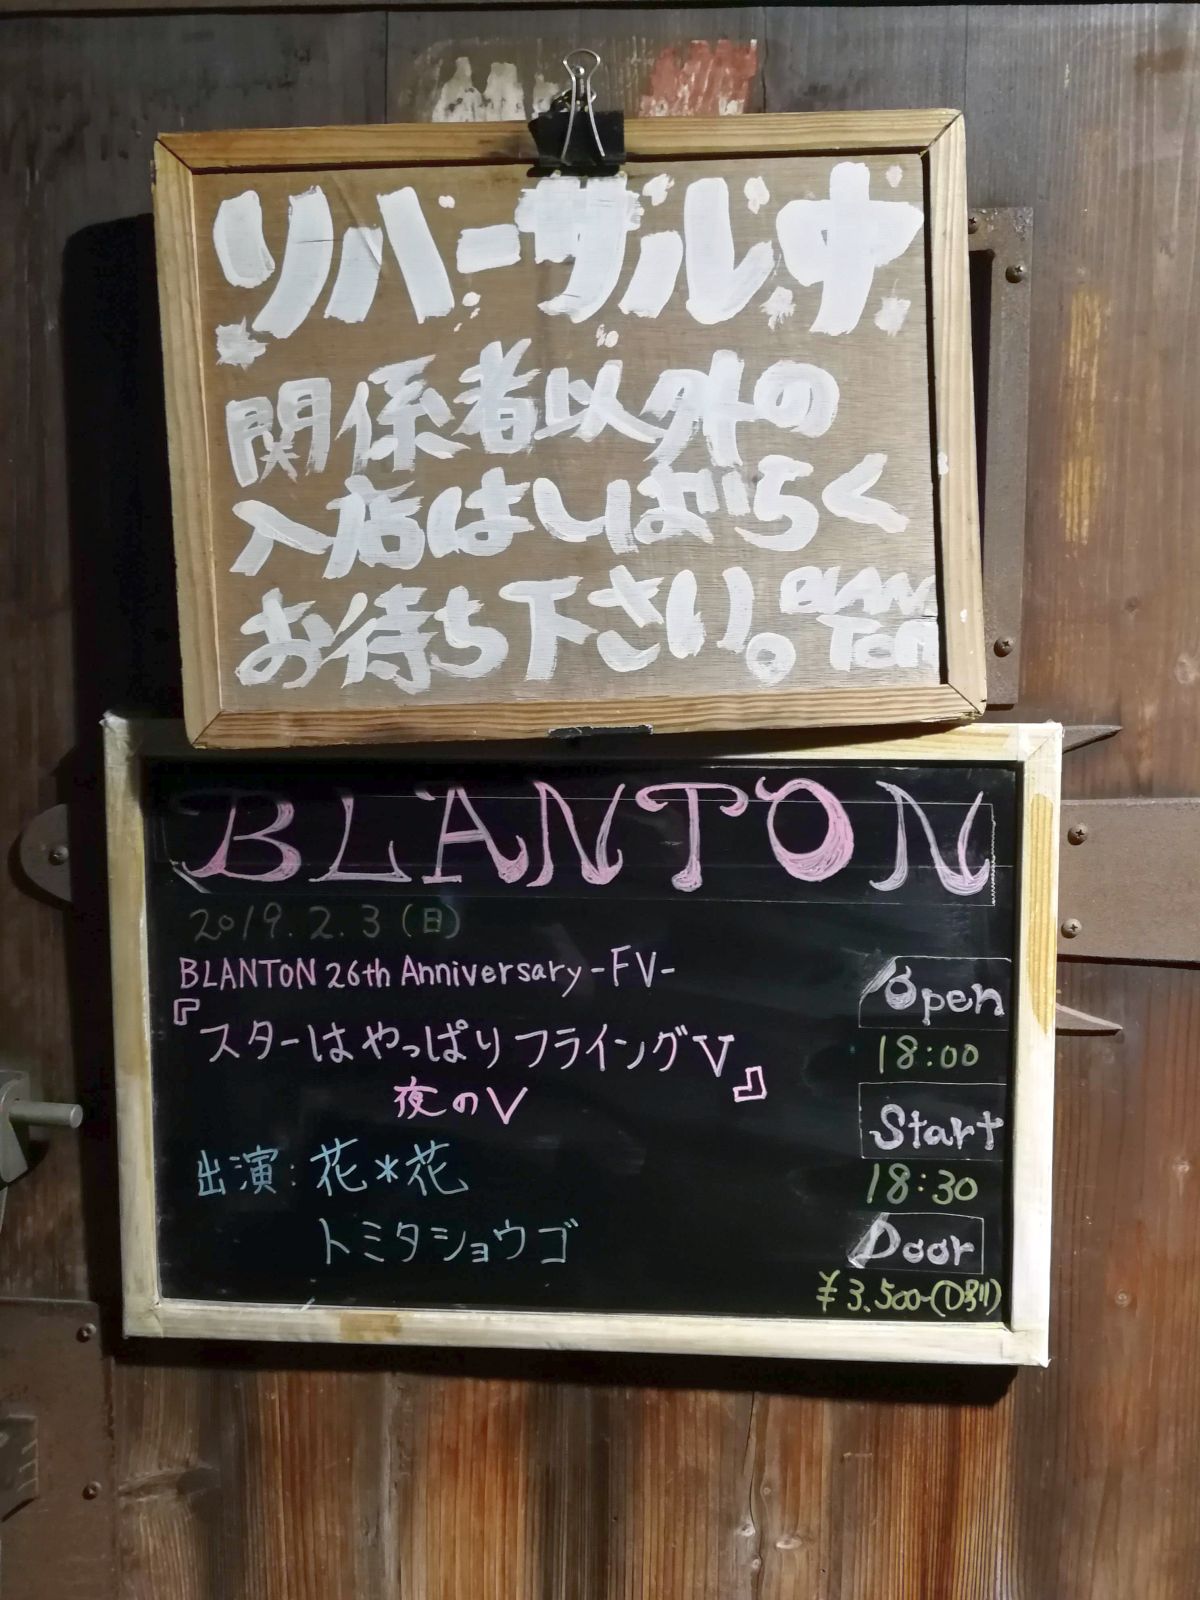 リハーサル中
関係者以外の
入店はしばらく
お待ち下さい。
BLAN
TON
BLANTON
2019.2.3(日)
BLANTON 26th Anniversary -FV-
『スターはやっぱりフライングV』
夜のV
出演:花*花
トミタショウゴ
Open
18:00
Start
18:30
Door
¥3.500-(D別)